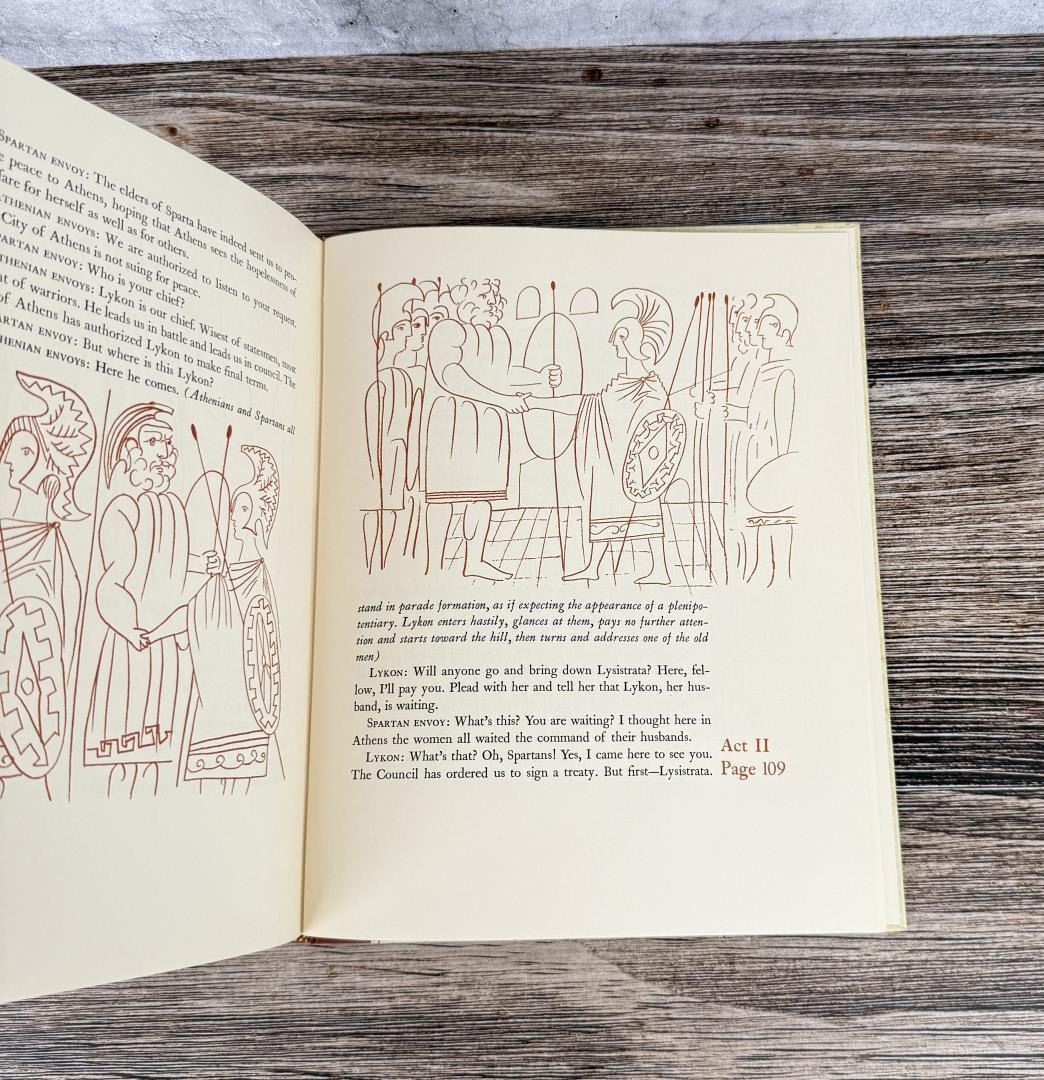 SPARTAN ENVOY: The elders of Sparta have indeed sent us to pro-
peace to Athens, hoping that Athens sees the hopelessness of
fare for herself as well as for others.
ATHENIAN ENVOYS: We are authorized to listen to your request.
City of Athens is not suing for peace.
SPARTAN ENVOY: Who is your chief?
ATHENIAN ENVOYS: Lykon is our chief. Wisest of statesmen, most
of warriors. He leads us in battle and leads us in council. The
of Athens has authorized Lykon to make final terms.
SPARTAN ENVOY: But where is this Lykon?
ATHENIAN ENVOYS: Here he comes. (Athenians and Spartans all
stand in parade formation, as if expecting the appearance of a plenipo-
tentiary. Lykon enters hastily, glances at them, pays no further atten-
tion and starts toward the hill, then turns and addresses one of the old
men)
LYKON: Will anyone go and bring down Lysistrata? Here, fel-
low, I'll pay you. Plead with her and tell her that Lykon, her hus-
band, is waiting.
SPARTAN ENVOY: What's this? You are waiting? I thought here in
Athens the women all waited the command of their husbands.
LYKON: What's that? Oh, Spartans! Yes, I came here to see you.
The Council has ordered us to sign a treaty. But first—Lysistrata.
Act II
Page 109